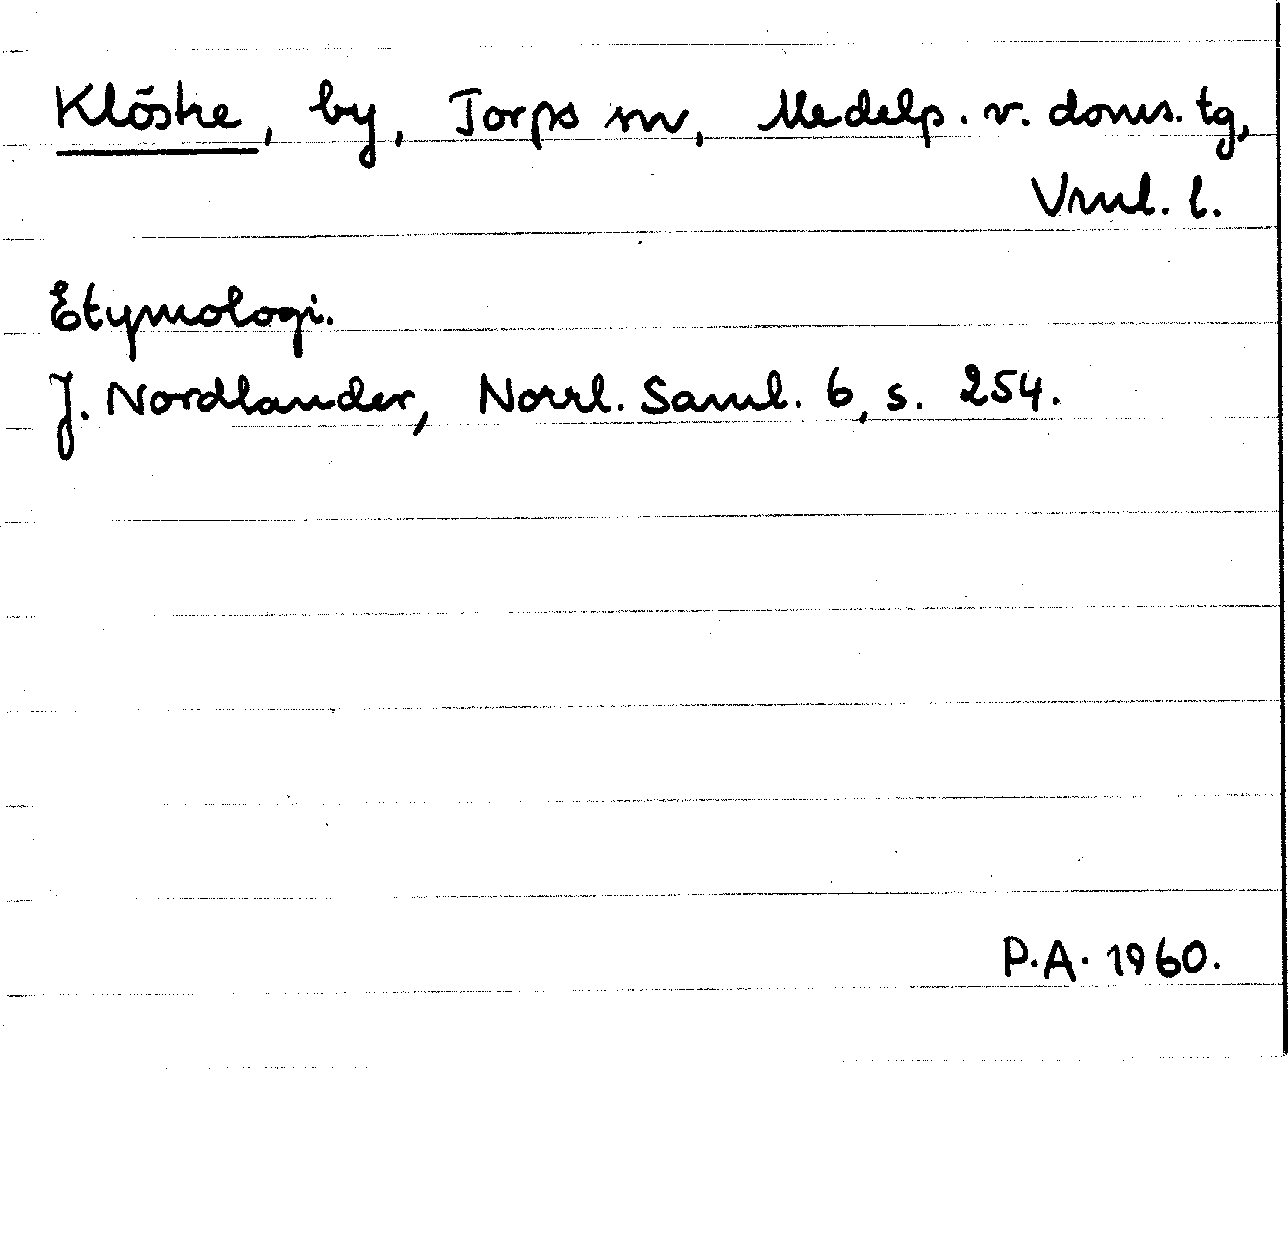 Klöske, by, Torps sn, Medelp. v. doms. tg,
Vnnl. l.
Etymologi.
J. Nordlander, Norrl. Saml. 6, s. 254.
P.A. 1960.